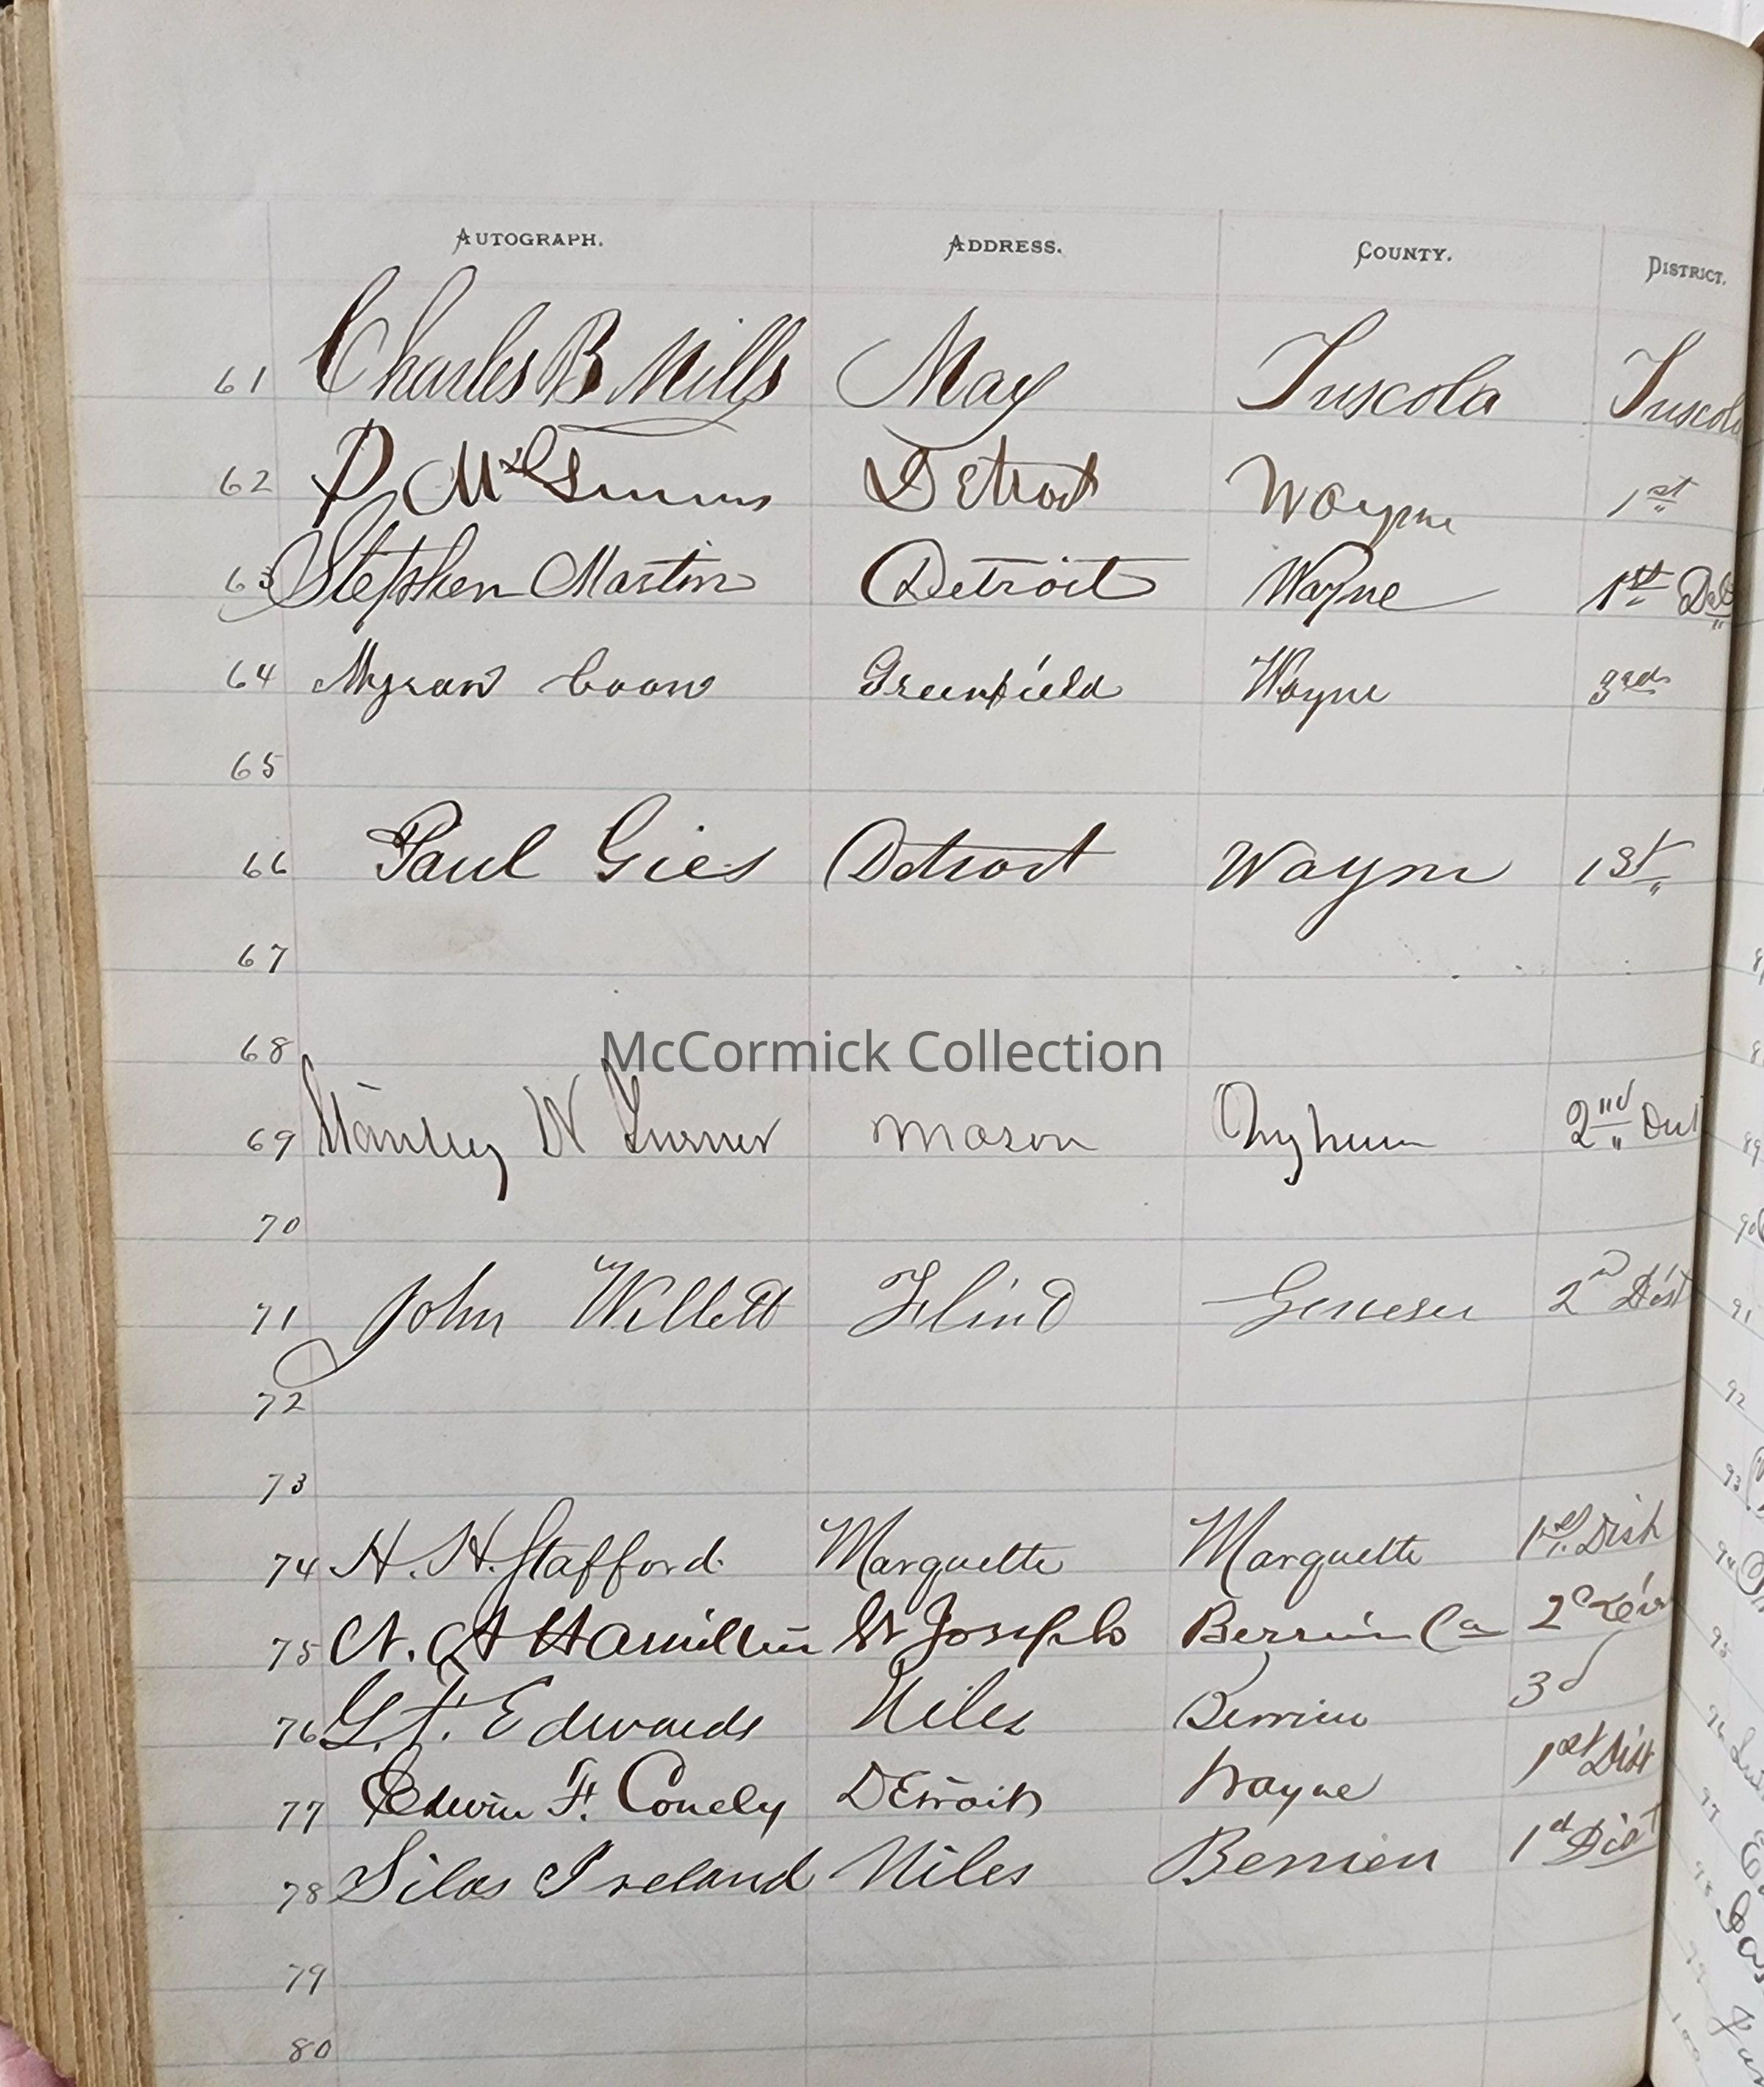 AUTOGRAPH. ADDRESS. COUNTY. DISTRICT.
61 Charles B Mills May Tuscola Tuscola
62 P McGinnis Detroit Wayne 1st
63 Stephen Martin Detroit Wayne 1st Dist
64 Myron Coon Greenfield Wayne 3rd
65
66 Paul Gies Detroit Wayne 1st
67
McCormick Collection
68
69 Stanley W Turner Mason Ingham 2nd Dist
70
71 John Willett Flint Genesee 2d Dist
72
73
74 H. H. Stafford Marquette Marquette 1st Dist
75 N. A Hamilton St Joseph Berrien Co 2d
76 G. F. Edwards Niles Berrien 3d
77 Edwin F. Conely Detroit Wayne 1st Dist
78 Silas Ireland Niles Berrien 1st Dist
79
80